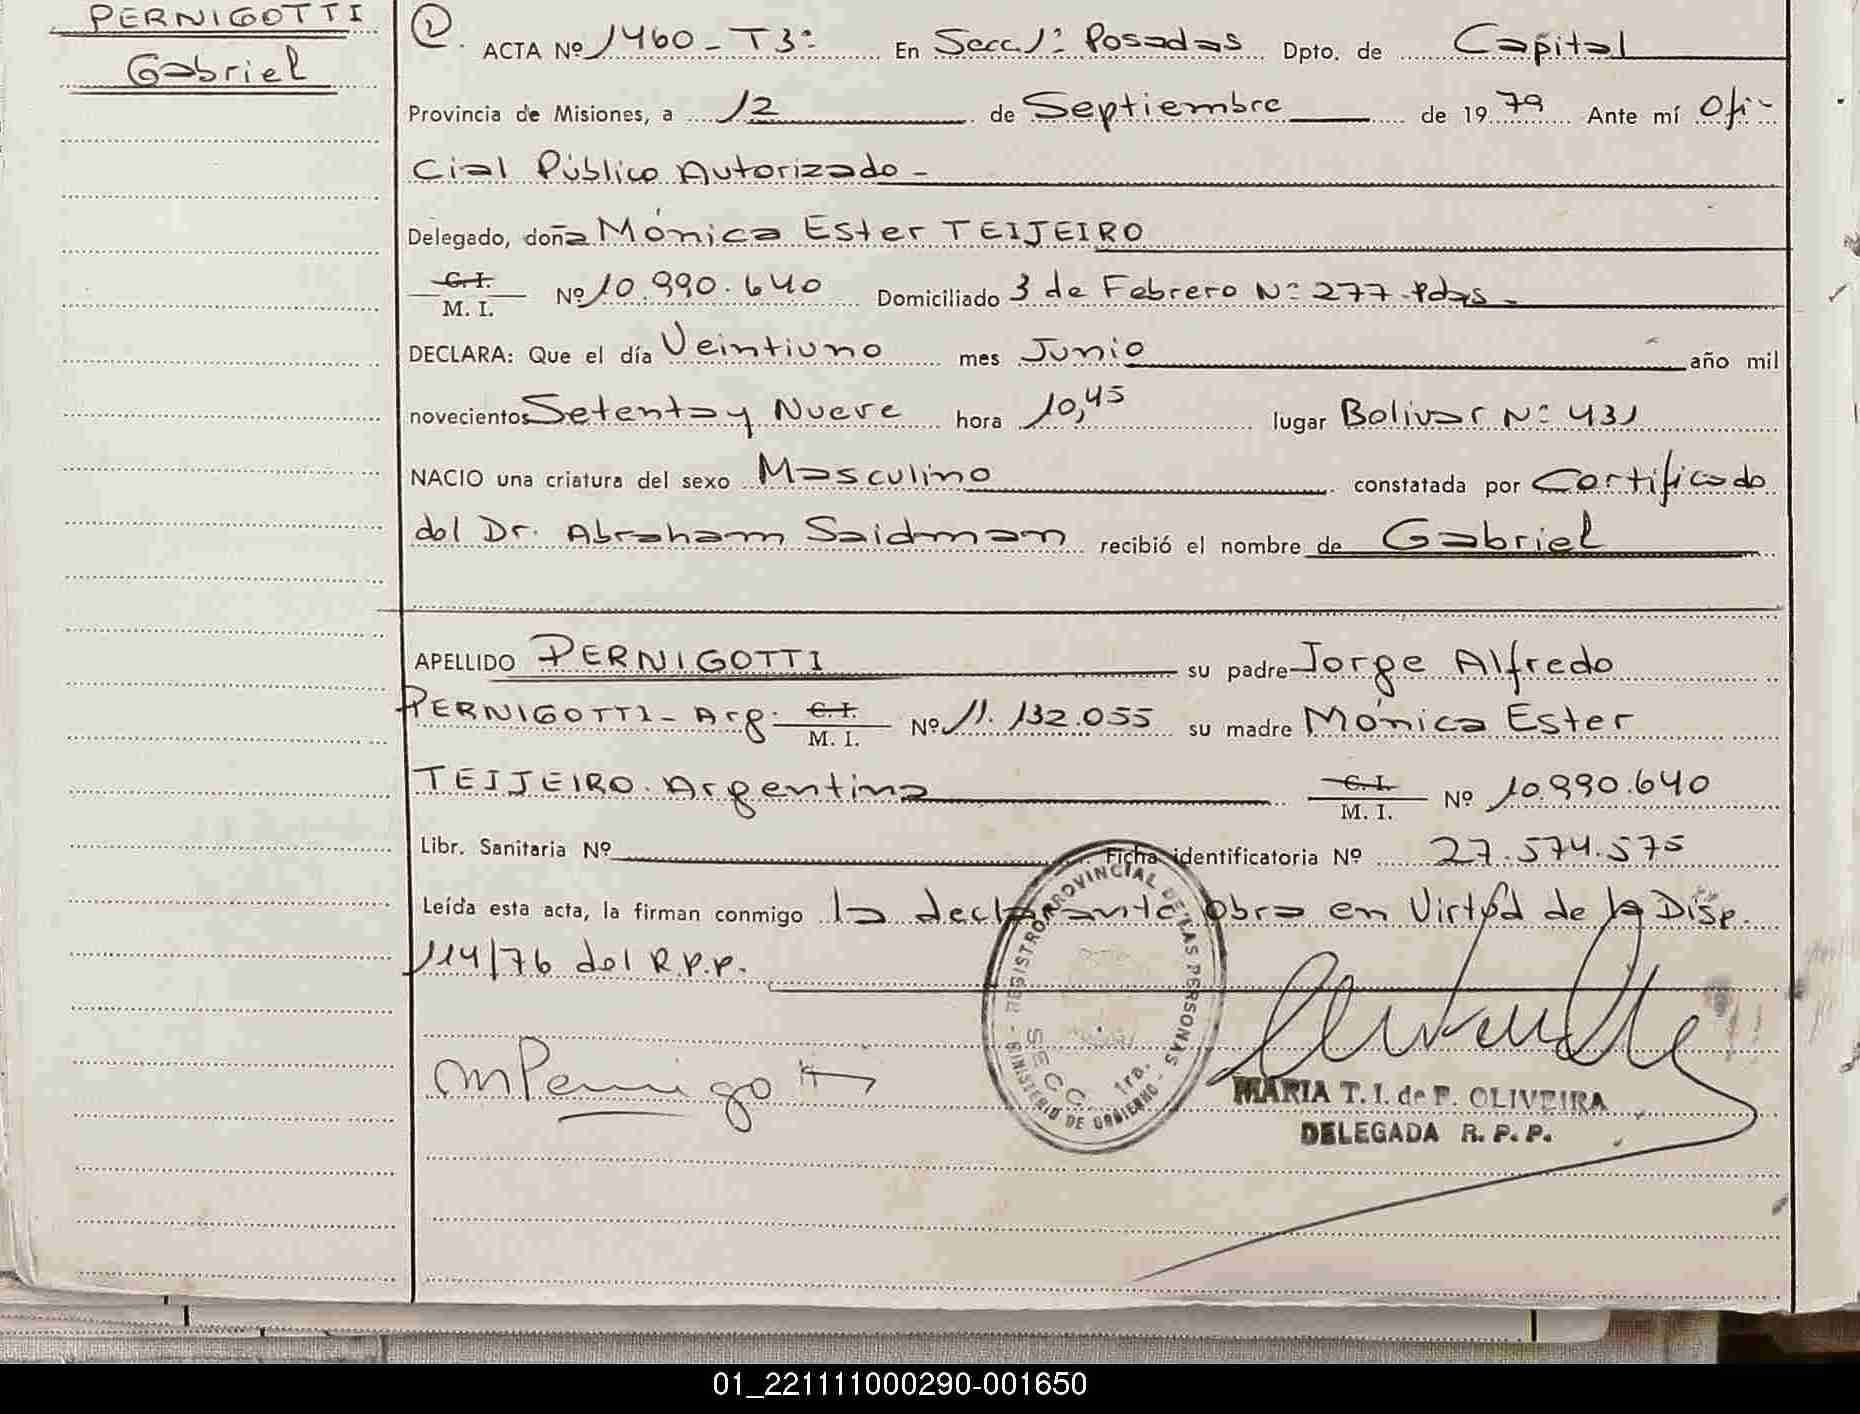 PERNIGOTTI
Gabriel
2. ACTA Nº 1460 - T3º En Secc. 1º Posadas Dpto. de Capital
Provincia de Misiones, a 12 de Septiembre de 1979 Ante mí Ofi-
cial Público Autorizado -
Delegado, doña Mónica Ester TEIJEIRO
C. I. M. I. Nº 10.990.640 Domiciliado 3 de Febrero Nº 277 - Pdas -
DECLARA: Que el día Veintiuno mes Junio año mil
novecientos Setenta y Nueve hora 10,45 lugar Bolivar Nº 431
NACIO una criatura del sexo Masculino constatada por Certificado
del Dr. Abraham Saidman recibió el nombre de Gabriel
APELLIDO PERNIGOTTI su padre Jorge Alfredo
PERNIGOTTI - Arg. C. I. M. I. Nº 11.132.055 su madre Mónica Ester
TEIJEIRO. Argentina C. I. M. I. Nº 10.990.640
Libr. Sanitaria Nº Ficha identificatoria Nº 27.574.575
Leída esta acta, la firman conmigo la declarante obra en Virtud de la Disp.
114/76 del R.P.P.
REGISTRO PROVINCIAL DE LAS PERSONAS
SECC. 1ra.
MINISTERIO DE GOBIERNO
MPernigotti
MARIA T. I. de F. OLIVEIRA
DELEGADA R. P. P.
01_221111000290-001650